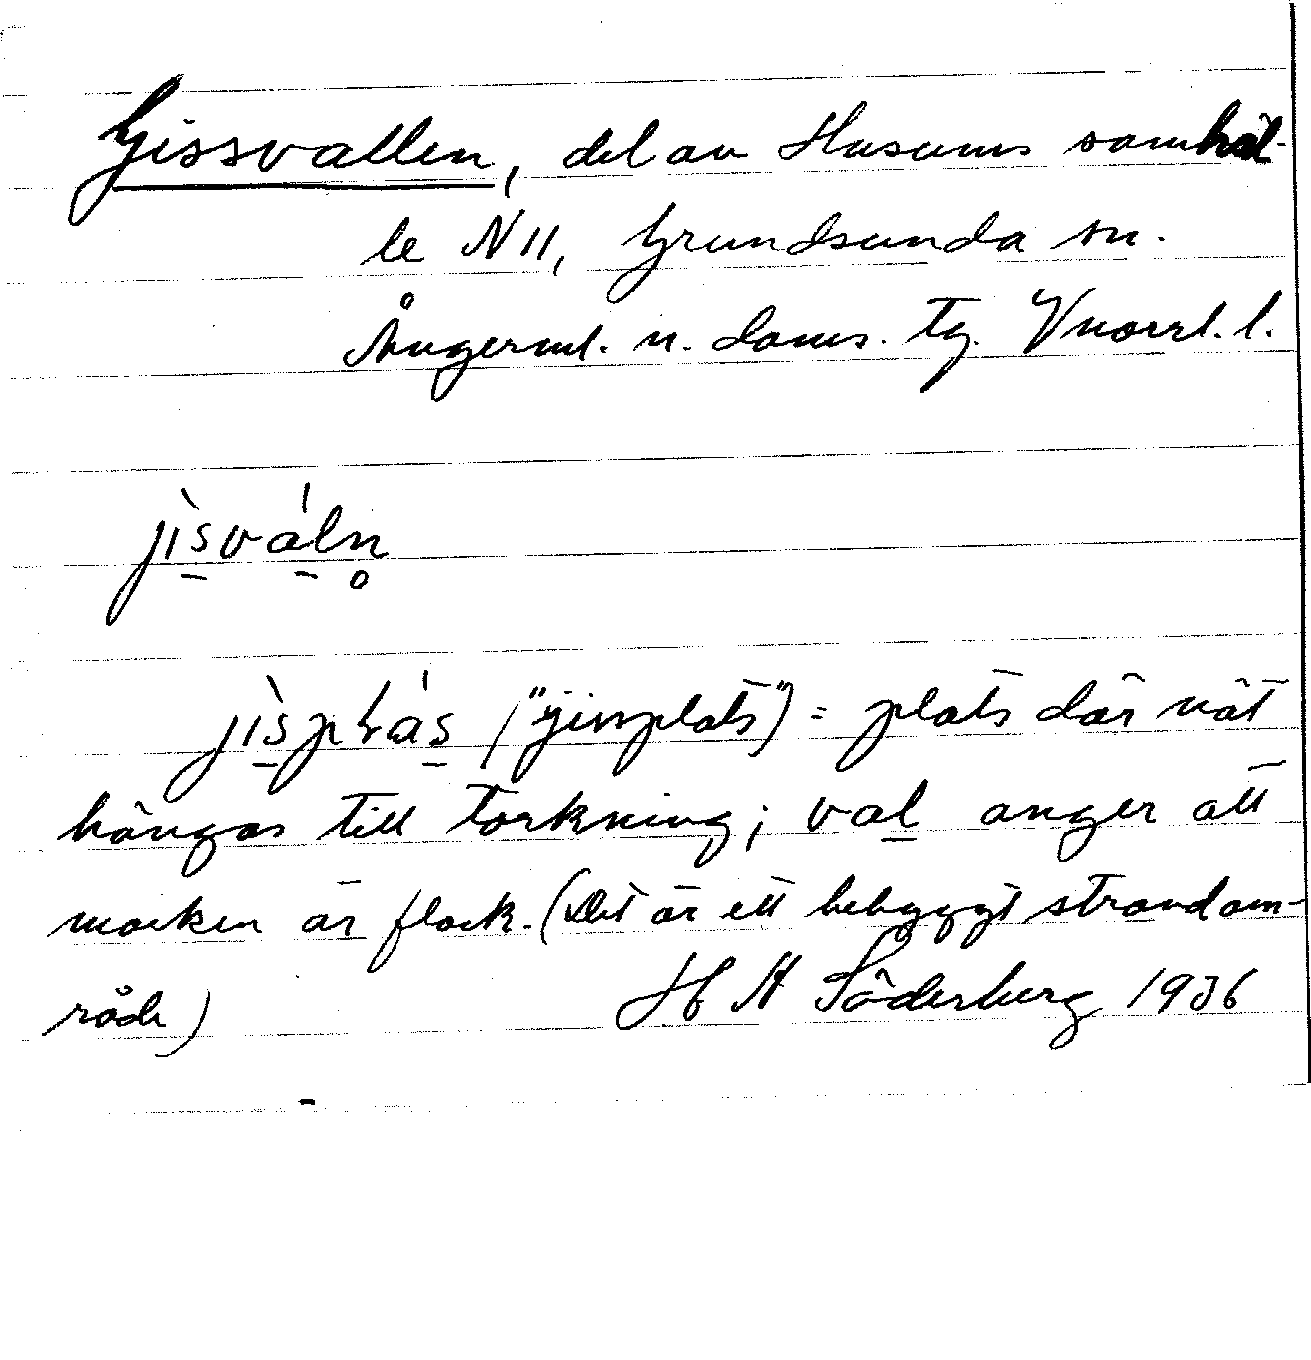 Gissvallen, del av Husums samhäl-
le N11, Grundsunda sn.
Ångerml. n. doms. tg. Vnorrl. l.
jìsváln̥
jìsplás ("gissplats") = plats där nät
hängas till torkning; val anger att
marken är flack. (Det är ett bebyggt strandom-
råde)
H H Söderberg 1936